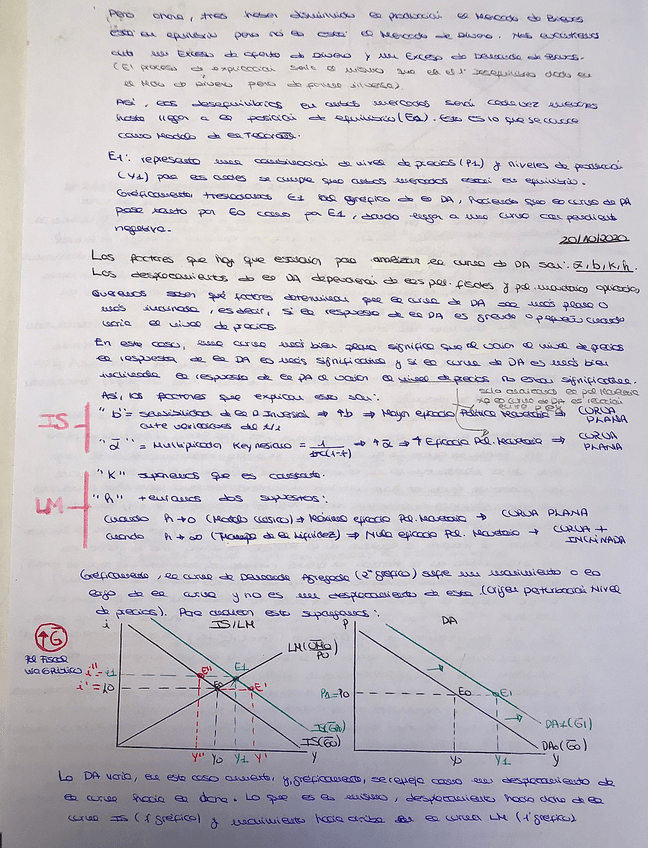 Pero ahora, tras haber disminuido la producción el Mercado de Bienes
está en equilibrio pero no lo está el Mercado de Dinero. Nos encontramos
ante un Exceso de oferta de Dinero y un Exceso de Demanda de Bonos.
(El proceso de explicación sería el mismo que en el 1º desequilibrio dado en
el Mdo de Dinero pero de forma inversa).
Así, los desequilibrios en ambos mercados serán cada vez menores
hasta llegar a la posición de equilibrio (E1). Esto es lo que se conoce
como Modelo de la Telaraña.
E1: representa una combinación de nivel de precios (P1) y niveles de producción
(Y1) para los cuales se cumple que ambos mercados están en equilibrio.
Gráficamente trasladamos E1 al gráfico de la DA, haciendo que la curva de DA
pase tanto por E0 como por E1, dando lugar a una curva con pendiente
negativa.
20/10/2020
Los factores que hay que estudiar para analizar la curva de DA son: α, b, k, h.
Los desplazamientos de la DA dependerán de las pol. fiscales y pol. monetarias aplicadas.
Queremos saber qué factores determinan que la curva de DA sea más plana o
más inclinada, es decir, si la respuesta de la DA es grande o pequeña cuando
varía el nivel de precios.
En este caso, una curva más bien plana significa que al variar el nivel de precios
la respuesta de la DA es más significativa y si la curva de DA es más bien
inclinada la respuesta de la DA al variar el nivel de precios no es tan significativa.
Así, los factores que explican esto son:
solo analizamos la pol. monetaria
xq la curva de DA es relación
entre P e Y
IS
"b" = sensibilidad de la Inversión → ↑b → Mayor eficacia Política Monetaria ⇒ CURVA PLANA
ante variaciones del t.i
"α" = Multiplicador Keynesiano = 1/1-c(1-t) → ↑α → ↑ Eficacia Pol. Monetaria ⇒ CURVA PLANA
LM
"K" suponemos que es constante.
"h" tenemos dos supuestos:
Cuando h→0 (Modelo clásico) ⇒ Máxima eficacia Pol. Monetaria → CURVA PLANA
Cuando h→∞ (Trampa de la Liquidez) ⇒ Nula eficacia Pol. Monetaria → CURVA + INCLINADA
Gráficamente, la curva de Demanda Agregada (2º gráfico) sufre un movimiento a lo
largo de la curva y no es un desplazamiento de esta. (Origen perturbación Nivel
de precios). Para analizar esto supongamos:
↑G
Pol Fiscal
vía Gto Público
i
IS/LM
LM(M0/P0)
i''=i1
i'=i0
E''
E1
E0
E'
IS(G1)
IS(G0)
Y'' Y0 Y1 Y' Y
P
DA
P1=P0
E0
E1
DA1(G1)
DA0(G0)
Y0 Y1 Y
La DA varía, en este caso aumenta, y, gráficamente, se refleja como un desplazamiento de
la curva hacia la dcha. Lo que es lo mismo, desplazamiento hacia dcha de la
curva IS (1º gráfico) y movimiento hacia arriba en la curva LM (1º gráfico)